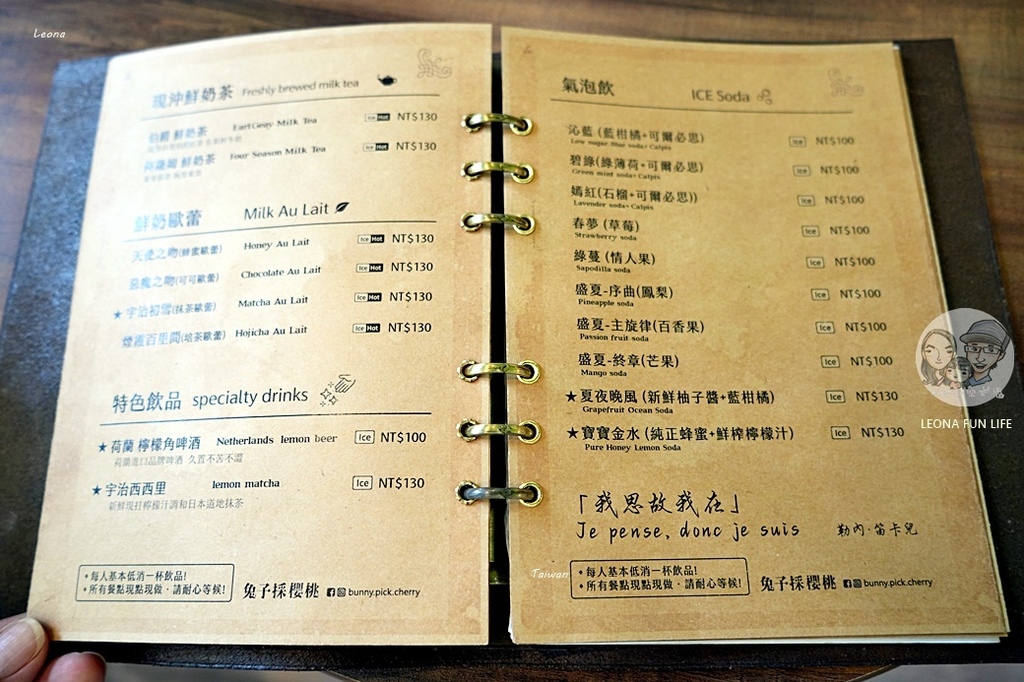 Leona
現沖鮮奶茶 Freshly brewed milk tea
伯爵 鮮奶茶 Earl Geay Milk Tea Ice Hot NT$130
鮮奶茶 Four Season Milk Tea Ice Hot NT$130
鮮奶歐蕾 Milk Au Lait
天使之吻(蜂蜜歐蕾) Honey Au Lait Ice Hot NT$130
惡魔之吻(可可歐蕾) Chocolate Au Lait Ice Hot NT$130
★ 宇治初雪(抹茶歐蕾) Matcha Au Lait Ice Hot NT$130
煙襲百里間(焙茶歐蕾) Hojicha Au Lait Ice Hot NT$130
特色飲品 specialty drinks
★ 荷蘭 檸檬角啤酒 Netherlands lemon beer Ice NT$100
荷蘭進口品牌啤酒 久置不苦不澀
★ 宇治西西里 lemon matcha Ice NT$130
新鮮現打檸檬汁調和日本道地抹茶
•每人基本低消一杯飲品!
•所有餐點現點現做．請耐心等候!
兔子採櫻桃 bunny.pick.cherry
氣泡飲 ICE Soda
沁藍 (藍柑橘+可爾必思) Ice NT$100
Low sugar Blue soda+ Calpis
碧綠(綠薄荷+可爾必思) Ice NT$100
Green mint soda+ Calpis
嫣紅(石榴+可爾必思)) Ice NT$100
Lavender soda+ Calpis
春夢 (草莓) Ice NT$100
Strawberry soda
綠蔓 (情人果) Ice NT$100
Sapodilla soda
盛夏-序曲(鳳梨) Ice NT$100
Pineapple soda
盛夏-主旋律(百香果) Ice NT$100
Passion fruit soda
盛夏-終章(芒果) Ice NT$100
Mango soda
★夏夜晚風 (新鮮柚子醬+藍柑橘) Ice NT$130
Grapefruit Ocean Soda
★寶寶金水 (純正蜂蜜+鮮榨檸檬汁) Ice NT$130
Pure Honey Lemon Soda
「我思故我在」
Je pense, donc je suis 勒內·笛卡兒
•每人基本低消一杯飲品!
•所有餐點現點現做．請耐心等候!
兔子採櫻桃 bunny.pick.cherry
Taiwan
LEONA FUN LIFE